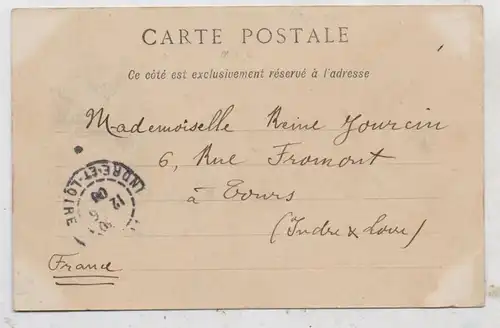 CARTE POSTALE
Ce côté est exclusivement réservé à l'adresse
Mademoiselle Reine Jourcin
6, Rue Fromont
à Tours
(Indre & Loire)
INDRE-ET-LOIRE
12
France